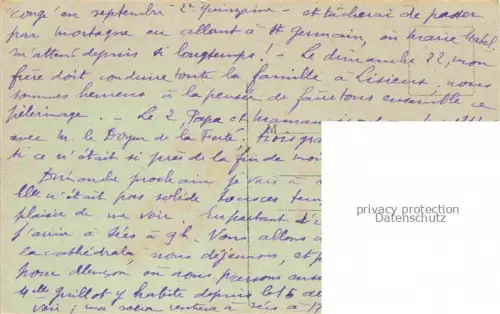 congé en septembre - 2e quinzaine - et tâcherai de passer
par mortagne en allant à St Germain, où Marie
m'attend depuis si longtemps! - Le dimanche 22, mon
frère doit conduire toute la famille à Lisieux; nous
sommes heureux à la pensée de faire tous ensemble ce
pèlerinage. - Le 2, Papa et Maman
avec M. le Doyen de la Ferté.
si ce n'était si près de la fin de
Dimanche prochain je vais à
Elle n'était pas solide
plaisir de me voir. En partant d'
j'arrive à Sées à 9h. Vous allons
la cathédrale, nous déjeunons, et
pour Alençon où nous passons
4 Mlle Guillot y habite depuis le 15 de
voir; ma soeur rentrera à Sées à 17
M
privacy protection
Datenschutz